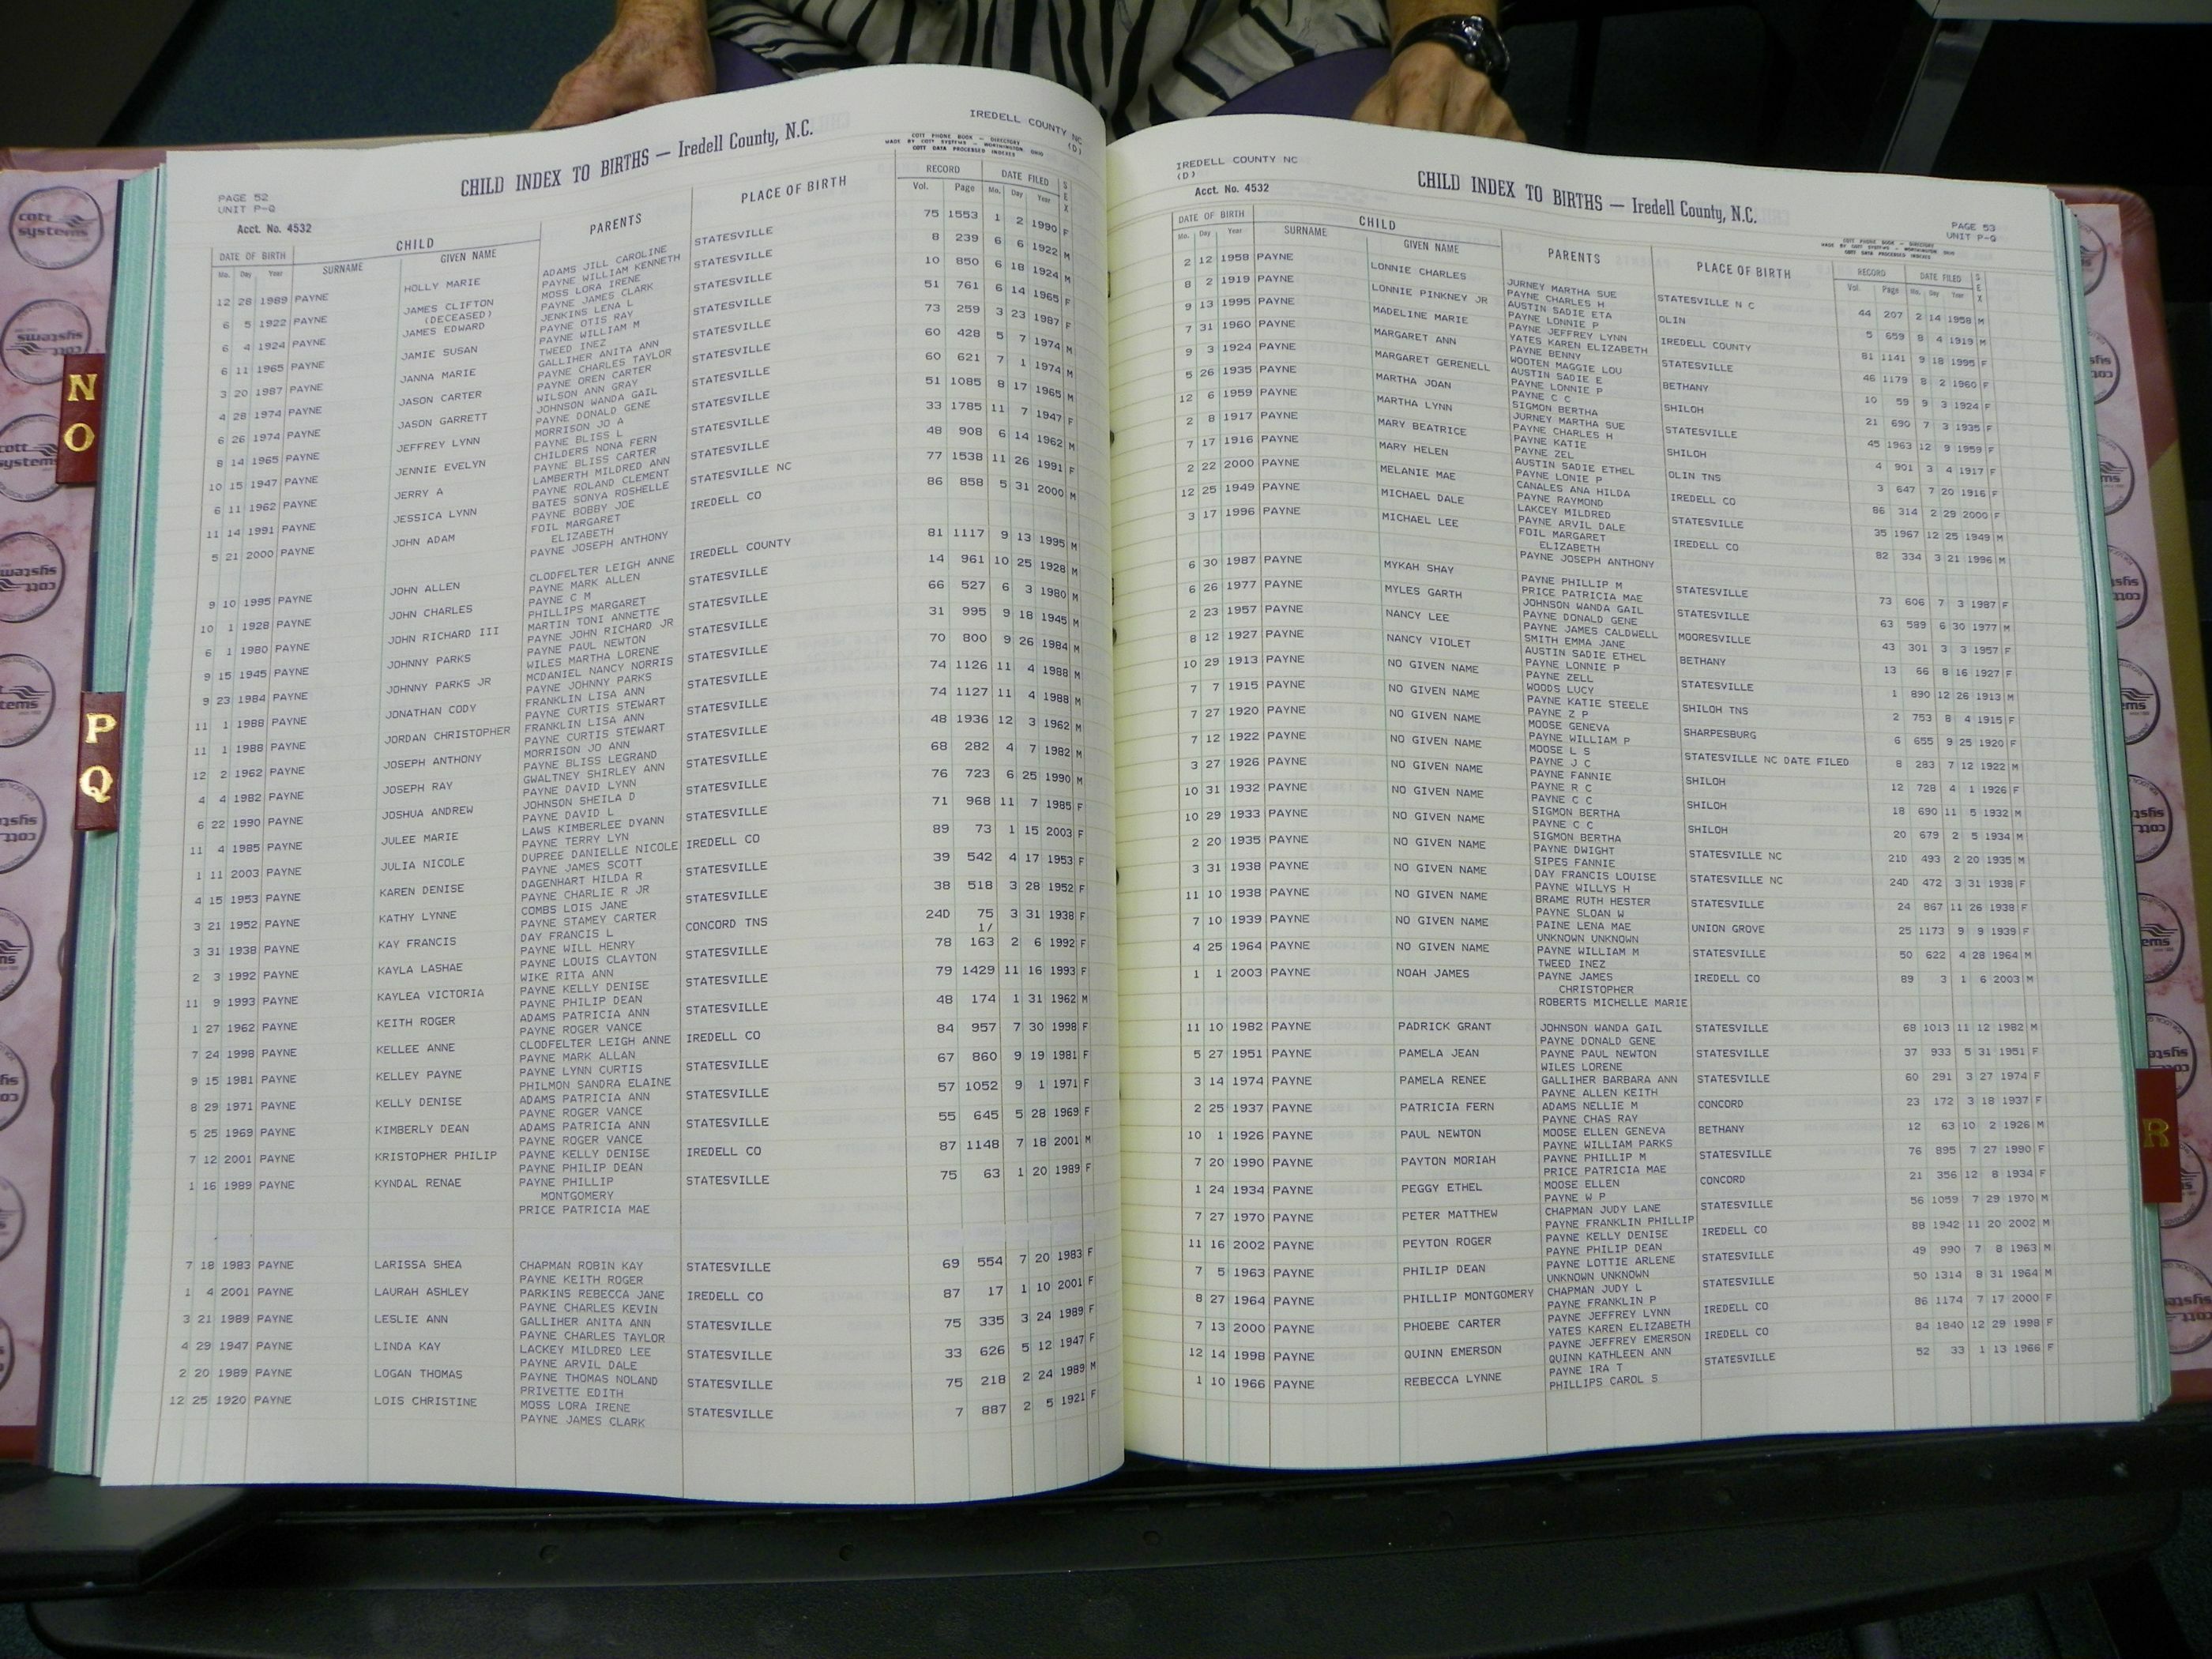 IREDELL COUNTY NC
(D)
CHILD INDEX TO BIRTHS — Iredell County, N.C.
COTT PHONE BOOK — DIRECTORY
MADE BY COTT SYSTEMS — WORTHINGTON, OHIO
COTT DATA PROCESSED INDEXES
PAGE 52
UNIT P-Q
Acct. No. 4532
DATE OF BIRTH CHILD PARENTS PLACE OF BIRTH RECORD DATE FILED SEX
Mo. Day Year SURNAME GIVEN NAME Vol. Page Mo. Day Year
12 28 1989 PAYNE HOLLY MARIE ADAMS JILL CAROLINE STATESVILLE 75 1553 1 2 1990 F
PAYNE WILLIAM KENNETH
6 5 1922 PAYNE JAMES CLIFTON MOSS LORA IRENE STATESVILLE 8 239 6 6 1922 M
(DECEASED) PAYNE JAMES CLARK
6 4 1924 PAYNE JAMES EDWARD JENKINS LENA L STATESVILLE 10 850 6 18 1924 M
PAYNE OTIS RAY
6 11 1965 PAYNE JAMIE SUSAN PAYNE WILLIAM M STATESVILLE 51 761 6 14 1965 F
TWEED INEZ
3 20 1987 PAYNE JANNA MARIE GALLIHER ANITA ANN STATESVILLE 73 259 3 23 1987 F
PAYNE CHARLES TAYLOR
4 28 1974 PAYNE JASON CARTER PAYNE OREN CARTER STATESVILLE 60 428 5 7 1974 M
WILSON ANN GRAY
6 26 1974 PAYNE JASON GARRETT JOHNSON WANDA GAIL STATESVILLE 60 621 7 1 1974 M
PAYNE DONALD GENE
8 14 1965 PAYNE JEFFREY LYNN MORRISON JO A STATESVILLE 51 1085 8 17 1965 M
PAYNE BLISS L
10 15 1947 PAYNE JENNIE EVELYN CHILDERS NONA FERN STATESVILLE 33 1785 11 7 1947 F
PAYNE BLISS CARTER
6 11 1962 PAYNE JERRY A LAMBERTH MILDRED ANN STATESVILLE 48 908 6 14 1962 M
PAYNE ROLAND CLEMENT
11 14 1991 PAYNE JESSICA LYNN BATES SONYA ROSHELLE STATESVILLE NC 77 1538 11 26 1991 F
PAYNE BOBBY JOE
5 21 2000 PAYNE JOHN ADAM FOIL MARGARET IREDELL CO 86 858 5 31 2000 M
ELIZABETH
PAYNE JOSEPH ANTHONY
9 10 1995 PAYNE JOHN ALLEN CLODFELTER LEIGH ANNE IREDELL COUNTY 81 1117 9 13 1995 M
PAYNE MARK ALLEN
10 1 1928 PAYNE JOHN CHARLES PAYNE C M STATESVILLE 14 961 10 25 1928 M
PHILLIPS MARGARET
6 1 1980 PAYNE JOHN RICHARD III MARTIN TONI ANNETTE STATESVILLE 66 527 6 3 1980 M
PAYNE JOHN RICHARD JR
9 15 1945 PAYNE JOHNNY PARKS PAYNE PAUL NEWTON STATESVILLE 31 995 9 18 1945 M
WILES MARTHA LORENE
9 23 1984 PAYNE JOHNNY PARKS JR MCDANIEL NANCY NORRIS STATESVILLE 70 800 9 26 1984 M
PAYNE JOHNNY PARKS
11 1 1988 PAYNE JONATHAN CODY FRANKLIN LISA ANN STATESVILLE 74 1126 11 4 1988 M
PAYNE CURTIS STEWART
11 1 1988 PAYNE JORDAN CHRISTOPHER FRANKLIN LISA ANN STATESVILLE 74 1127 11 4 1988 M
PAYNE CURTIS STEWART
12 2 1962 PAYNE JOSEPH ANTHONY MORRISON JO ANN STATESVILLE 48 1936 12 3 1962 M
PAYNE BLISS LEGRAND
4 4 1982 PAYNE JOSEPH RAY GWALTNEY SHIRLEY ANN STATESVILLE 68 282 4 7 1982 M
PAYNE DAVID LYNN
6 22 1990 PAYNE JOSHUA ANDREW JOHNSON SHEILA D STATESVILLE 76 723 6 25 1990 M
PAYNE DAVID L
11 4 1985 PAYNE JULEE MARIE LAWS KIMBERLEE DYANN STATESVILLE 71 968 11 7 1985 F
PAYNE TERRY LYN
1 11 2003 PAYNE JULIA NICOLE DUPREE DANIELLE NICOLE IREDELL CO 89 73 1 15 2003 F
PAYNE JAMES SCOTT
4 15 1953 PAYNE KAREN DENISE DAGENHART HILDA R STATESVILLE 39 542 4 17 1953 F
PAYNE CHARLIE R JR
3 21 1952 PAYNE KATHY LYNNE COMBS LOIS JANE STATESVILLE 38 518 3 28 1952 F
PAYNE STAMEY CARTER
3 31 1938 PAYNE KAY FRANCIS DAY FRANCIS L CONCORD TNS 24D 75 3 31 1938 F
PAYNE WILL HENRY 1/
2 3 1992 PAYNE KAYLA LASHAE PAYNE LOUIS CLAYTON STATESVILLE 78 163 2 6 1992 F
WIKE RITA ANN
11 9 1993 PAYNE KAYLEA VICTORIA PAYNE KELLY DENISE STATESVILLE 79 1429 11 16 1993 F
PAYNE PHILIP DEAN
1 27 1962 PAYNE KEITH ROGER ADAMS PATRICIA ANN STATESVILLE 48 174 1 31 1962 M
PAYNE ROGER VANCE
7 24 1998 PAYNE KELLEE ANNE CLODFELTER LEIGH ANNE IREDELL CO 84 957 7 30 1998 F
PAYNE MARK ALLAN
9 15 1981 PAYNE KELLEY PAYNE PAYNE LYNN CURTIS STATESVILLE 67 860 9 19 1981 F
PHILMON SANDRA ELAINE
8 29 1971 PAYNE KELLY DENISE ADAMS PATRICIA ANN STATESVILLE 57 1052 9 1 1971 F
PAYNE ROGER VANCE
5 25 1969 PAYNE KIMBERLY DEAN ADAMS PATRICIA ANN STATESVILLE 55 645 5 28 1969 F
PAYNE ROGER VANCE
7 12 2001 PAYNE KRISTOPHER PHILIP PAYNE KELLY DENISE IREDELL CO 87 1148 7 18 2001 M
PAYNE PHILIP DEAN
1 16 1989 PAYNE KYNDAL RENAE PAYNE PHILLIP STATESVILLE 75 63 1 20 1989 F
MONTGOMERY
PRICE PATRICIA MAE
7 18 1983 PAYNE LARISSA SHEA CHAPMAN ROBIN KAY STATESVILLE 69 554 7 20 1983 F
PAYNE KEITH ROGER
1 4 2001 PAYNE LAURAH ASHLEY PARKINS REBECCA JANE IREDELL CO 87 17 1 10 2001 F
PAYNE CHARLES KEVIN
3 21 1989 PAYNE LESLIE ANN GALLIHER ANITA ANN STATESVILLE 75 335 3 24 1989 F
PAYNE CHARLES TAYLOR
4 29 1947 PAYNE LINDA KAY LACKEY MILDRED LEE STATESVILLE 33 626 5 12 1947 F
PAYNE ARVIL DALE
2 20 1989 PAYNE LOGAN THOMAS PAYNE THOMAS NOLAND STATESVILLE 75 218 2 24 1989 M
PRIVETTE EDITH
12 25 1920 PAYNE LOIS CHRISTINE MOSS LORA IRENE STATESVILLE 7 887 2 5 1921 F
PAYNE JAMES CLARK
IREDELL COUNTY NC
(D)
Acct. No. 4532
CHILD INDEX TO BIRTHS — Iredell County, N.C.
PAGE 53
UNIT P-Q
COTT PHONE BOOK — DIRECTORY
MADE BY COTT SYSTEMS — WORTHINGTON, OHIO
COTT DATA PROCESSED INDEXES
DATE OF BIRTH CHILD PARENTS PLACE OF BIRTH RECORD DATE FILED SEX
Mo. Day Year SURNAME GIVEN NAME Vol. Page Mo. Day Year
2 12 1958 PAYNE LONNIE CHARLES JURNEY MARTHA SUE STATESVILLE N C 44 207 2 14 1958 M
PAYNE CHARLES H
8 2 1919 PAYNE LONNIE PINKNEY JR AUSTIN SADIE ETA OLIN 5 659 8 4 1919 M
PAYNE LONNIE P
9 13 1995 PAYNE MADELINE MARIE PAYNE JEFFREY LYNN IREDELL COUNTY 81 1141 9 18 1995 F
YATES KAREN ELIZABETH
7 31 1960 PAYNE MARGARET ANN PAYNE BENNY STATESVILLE 46 1179 8 2 1960 F
WOOTEN MAGGIE LOU
9 3 1924 PAYNE MARGARET GERENELL AUSTIN SADIE E BETHANY 10 59 9 3 1924 F
PAYNE LONNIE P
5 26 1935 PAYNE MARTHA JOAN PAYNE C C SHILOH 21 690 7 3 1935 F
SIGMON BERTHA
12 6 1959 PAYNE MARTHA LYNN JURNEY MARTHA SUE STATESVILLE 45 1963 12 9 1959 F
PAYNE CHARLES H
2 8 1917 PAYNE MARY BEATRICE PAYNE KATIE SHILOH 4 901 3 4 1917 F
PAYNE ZEL
7 17 1916 PAYNE MARY HELEN AUSTIN SADIE ETHEL OLIN TNS 3 647 7 20 1916 F
PAYNE LONIE P
2 22 2000 PAYNE MELANIE MAE CANALES ANA HILDA IREDELL CO 86 314 2 29 2000 F
PAYNE RAYMOND
12 25 1949 PAYNE MICHAEL DALE LAKCEY MILDRED STATESVILLE 35 1967 12 25 1949 M
PAYNE ARVIL DALE
3 17 1996 PAYNE MICHAEL LEE FOIL MARGARET IREDELL CO 82 334 3 21 1996 M
ELIZABETH
PAYNE JOSEPH ANTHONY
6 30 1987 PAYNE MYKAH SHAY PAYNE PHILLIP M STATESVILLE 73 606 7 3 1987 F
PRICE PATRICIA MAE
6 26 1977 PAYNE MYLES GARTH JOHNSON WANDA GAIL STATESVILLE 63 589 6 30 1977 M
PAYNE DONALD GENE
2 23 1957 PAYNE NANCY LEE PAYNE JAMES CALDWELL MOORESVILLE 43 301 3 3 1957 F
SMITH EMMA JANE
8 12 1927 PAYNE NANCY VIOLET AUSTIN SADIE ETHEL BETHANY 13 66 8 16 1927 F
PAYNE LONNIE P
10 29 1913 PAYNE NO GIVEN NAME PAYNE ZELL STATESVILLE 1 890 12 26 1913 M
WOODS LUCY
7 7 1915 PAYNE NO GIVEN NAME PAYNE KATIE STEELE SHILOH TNS 2 753 8 4 1915 F
PAYNE Z P
7 27 1920 PAYNE NO GIVEN NAME MOOSE GENEVA SHARPESBURG 6 655 9 25 1920 F
PAYNE WILLIAM P
7 12 1922 PAYNE NO GIVEN NAME MOOSE L S STATESVILLE NC DATE FILED 8 283 7 12 1922 M
PAYNE J C
3 27 1926 PAYNE NO GIVEN NAME PAYNE FANNIE SHILOH 12 728 4 1 1926 F
PAYNE R C
10 31 1932 PAYNE NO GIVEN NAME PAYNE C C SHILOH 18 690 11 5 1932 M
SIGMON BERTHA
10 29 1933 PAYNE NO GIVEN NAME PAYNE C C SHILOH 20 679 2 5 1934 M
SIGMON BERTHA
2 20 1935 PAYNE NO GIVEN NAME PAYNE DWIGHT STATESVILLE NC 21D 493 2 20 1935 M
SIPES FANNIE
3 31 1938 PAYNE NO GIVEN NAME DAY FRANCIS LOUISE STATESVILLE NC 24D 472 3 31 1938 F
PAYNE WILLYS H
11 10 1938 PAYNE NO GIVEN NAME BRAME RUTH HESTER STATESVILLE 24 867 11 26 1938 F
PAYNE SLOAN W
7 10 1939 PAYNE NO GIVEN NAME PAINE LENA MAE UNION GROVE 25 1173 9 9 1939 F
UNKNOWN UNKNOWN
4 25 1964 PAYNE NO GIVEN NAME PAYNE WILLIAM M STATESVILLE 50 622 4 28 1964 M
TWEED INEZ
1 1 2003 PAYNE NOAH JAMES PAYNE JAMES IREDELL CO 89 3 1 6 2003 M
CHRISTOPHER
ROBERTS MICHELLE MARIE
11 10 1982 PAYNE PADRICK GRANT JOHNSON WANDA GAIL STATESVILLE 68 1013 11 12 1982 M
PAYNE DONALD GENE
5 27 1951 PAYNE PAMELA JEAN PAYNE PAUL NEWTON STATESVILLE 37 933 5 31 1951 F
WILES LORENE
3 14 1974 PAYNE PAMELA RENEE GALLIHER BARBARA ANN STATESVILLE 60 291 3 27 1974 F
PAYNE ALLEN KEITH
2 25 1937 PAYNE PATRICIA FERN ADAMS NELLIE M CONCORD 23 172 3 18 1937 F
PAYNE CHAS RAY
10 1 1926 PAYNE PAUL NEWTON MOOSE ELLEN GENEVA BETHANY 12 63 10 2 1926 M
PAYNE WILLIAM PARKS
7 20 1990 PAYNE PAYTON MORIAH PAYNE PHILLIP M STATESVILLE 76 895 7 27 1990 F
PRICE PATRICIA MAE
1 24 1934 PAYNE PEGGY ETHEL MOOSE ELLEN CONCORD 21 356 12 8 1934 F
PAYNE W P
7 27 1970 PAYNE PETER MATTHEW CHAPMAN JUDY LANE STATESVILLE 56 1059 7 29 1970 M
PAYNE FRANKLIN PHILLIP
11 16 2002 PAYNE PEYTON ROGER PAYNE KELLY DENISE IREDELL CO 88 1942 11 20 2002 M
PAYNE PHILIP DEAN
7 5 1963 PAYNE PHILIP DEAN PAYNE LOTTIE ARLENE STATESVILLE 49 990 7 8 1963 M
UNKNOWN UNKNOWN
8 27 1964 PAYNE PHILLIP MONTGOMERY CHAPMAN JUDY L STATESVILLE 50 1314 8 31 1964 M
PAYNE FRANKLIN P
7 13 2000 PAYNE PHOEBE CARTER PAYNE JEFFREY LYNN IREDELL CO 86 1174 7 17 2000 F
YATES KAREN ELIZABETH
12 14 1998 PAYNE QUINN EMERSON PAYNE JEFFREY EMERSON IREDELL CO 84 1840 12 29 1998 F
QUINN KATHLEEN ANN
1 10 1966 PAYNE REBECCA LYNNE PAYNE IRA T STATESVILLE 52 33 1 13 1966 F
PHILLIPS CAROL S
N
O
P
Q
R
cott
systems